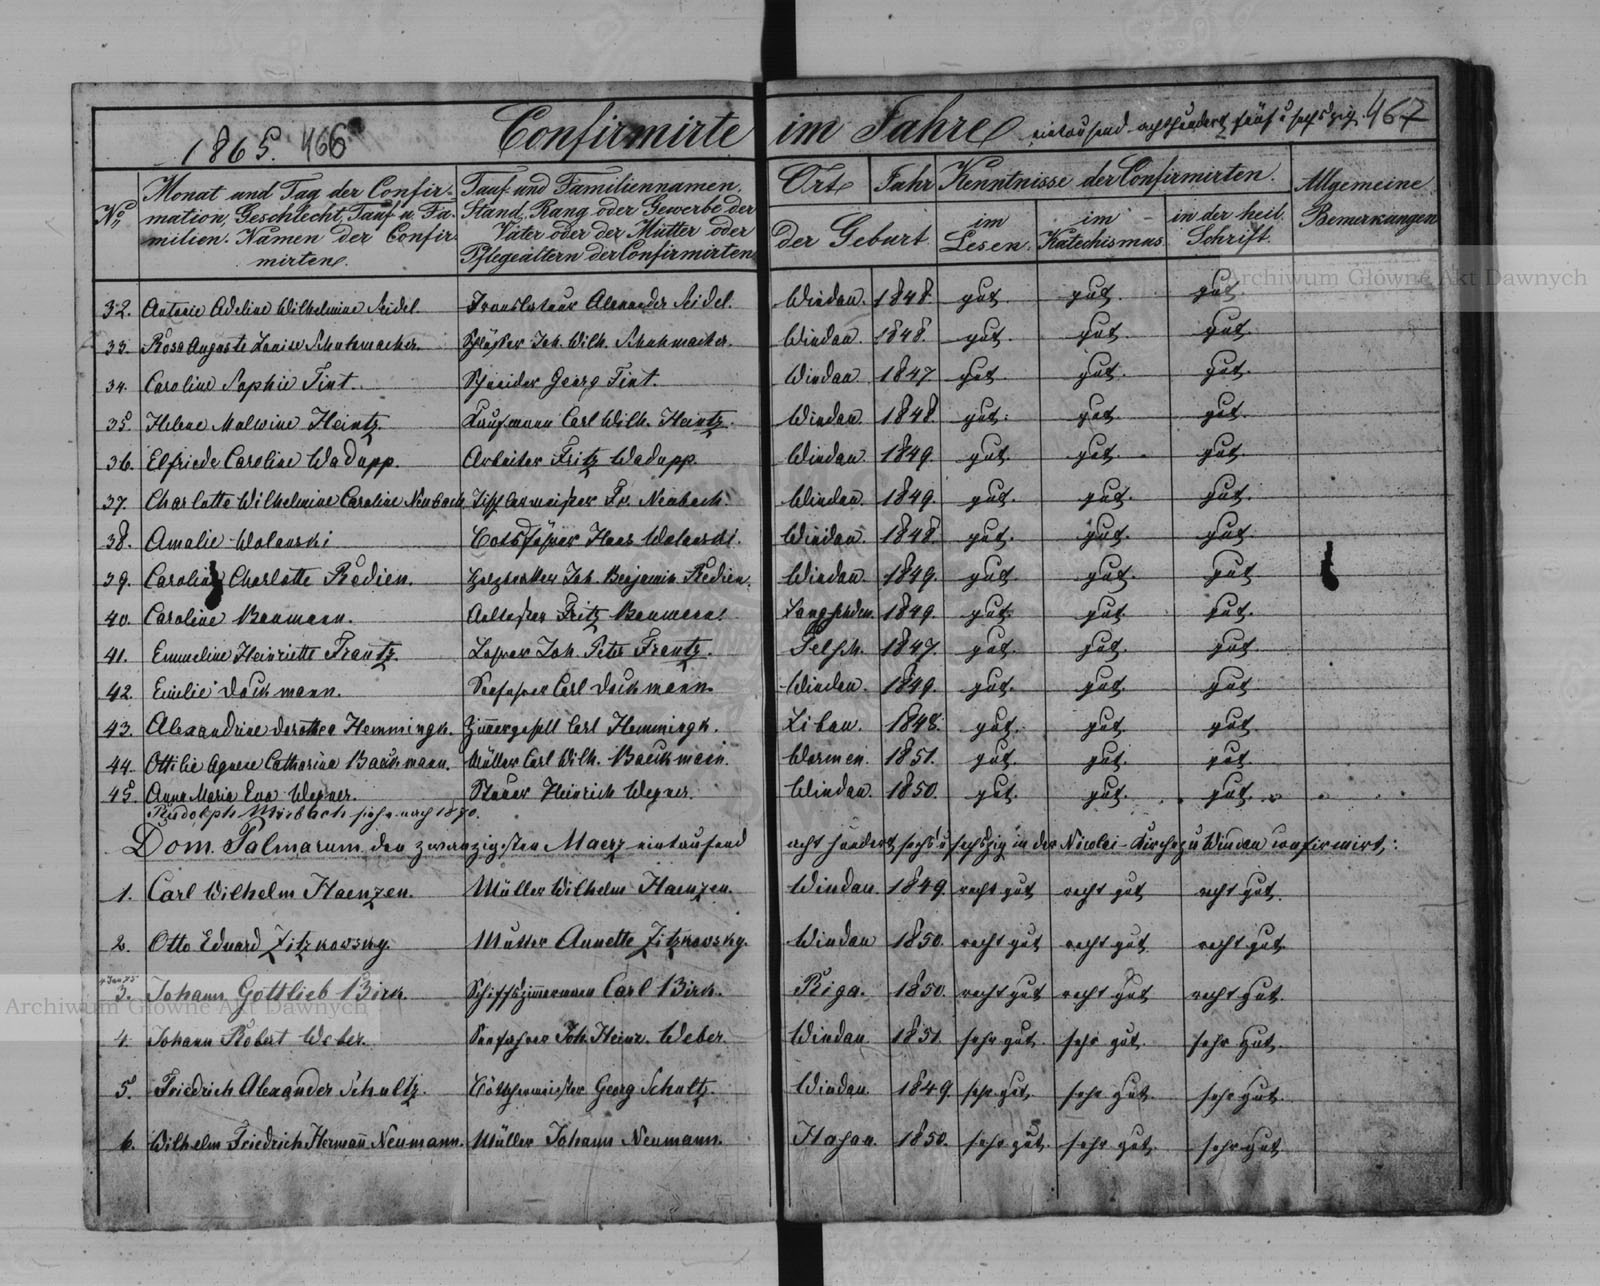 1865. 466 Confirmirte im Jahre eintausend achthundert fünf u sechszig. 467
No. Monat und Tag der Confirmation, Geschlecht, Tauf u. Familien Namen der Confirmirten. Tauf und Familiennamen, Stand, Rang oder Gewerbe der Väter oder der Mütter oder Pflegeältern der Confirmirten Ort Jahr der Geburt. Kenntnisse der Confirmirten. im Lesen. im Katechismus. in der heil. Schrift. Allgemeine Bemerkungen
Archiwum Główne Akt Dawnych
32. Antonie Adeline Wilhelmine Seidel. Alexander Seidel. Windau. 1848. gut. gut. gut.
33. Rosa Auguste Louise Schuhmacher. Joh. Wilh. Schuhmacher. Windau. 1848. gut. gut. gut.
34. Caroline Sophie Tint. Schneider Georg Tint. Windau 1847 gut. gut. gut.
35. Helene Malwine Heintz. Kaufmann Carl Wilh. Heintz. Windau. 1848. gut. gut. gut.
36. Elfriede Caroline Wadapp. Arbeiter Fritz Wadapp. Windau. 1849. gut. gut. gut.
37. Charlotte Wilhelmine Caroline Neubach. Tischlermeister Fr. Neubach. Windau. 1849. gut. gut. gut.
38. Amalie Wolanski Hans Wolanski. Windau. 1848 gut. gut. gut.
39. Caroline Charlotte Redien. Joh. Benjamin Redien. Windau. 1849. gut. gut. gut
40. Caroline Baumann. Fritz Baumann. 1849. gut. gut. gut.
41. Emmeline Heinriette Frantz. Joh. Peter Frantz. 1847. gut. gut. gut.
42. Emilie Dachmann. Seefahrer Carl Dachmann. Windau. 1849. gut. gut. gut
43. Alexandrine Dorothea Hemmingk. Zimmergesell Carl Hemmingk. Libau. 1848. gut. gut. gut
44. Ottilie Agnese Catharina Backmann. Müller Carl Wilh. Backmann. Wormen. 1851. gut. gut. gut.
45. Anna Maria Eva Wegner. Heinrich Wegner. Windau. 1850. gut. gut. gut.
Rudolph Mirbach siehe nach 1870.
Dom. Palmarum den zwanzigsten Maerz eintausend acht hundert sechs u sechszig in der Nicolai-Kirche zu Windau confirmirt:
1. Carl Wilhelm Haenzen. Müller Wilhelm Haenzen. Windau. 1849. recht gut recht gut recht gut.
2. Otto Eduard Zitzkowsky. Mutter Annette Zitzkowsky. Windau 1850. recht gut recht gut recht gut.
3. Johann Gottlieb Birk. Schiffszimmermann Carl Birk. Riga. 1850. recht gut recht gut recht gut.
Archiwum Główne Akt Dawnych
4. Johann Robert Weber. Seefahrer Joh. Heinr. Weber. Windau. 1851. sehr gut. sehr gut. sehr gut.
5. Friedrich Alexander Schultz. Böttchermeister Georg Schultz. Windau. 1849. sehr gut. sehr gut. sehr gut.
6. Wilhelm Friedrich Hermann Neumann. Müller Johann Neumann. 1850. sehr gut. sehr gut. sehr gut